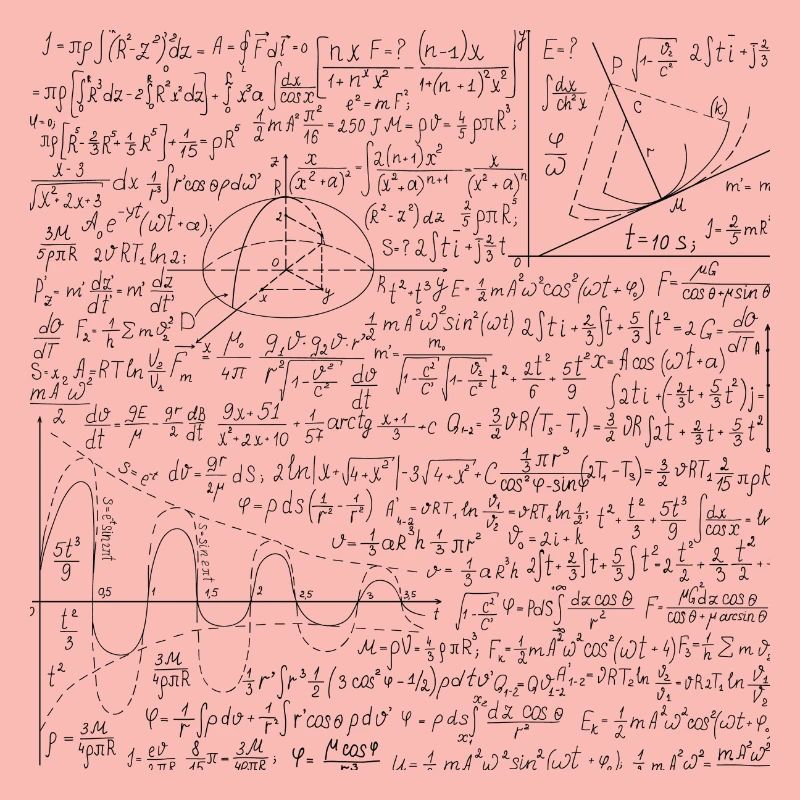 J = πρ∫(R²-z²)²dz = A = ∮F⃗dl⃗ = 0 [nx F=? (n-1)x y
1+nˣx² 1+(n+1)²x²
E=? P √1-v²/c² 2∫ti+j2/3
= πρ[∫R³dz-2∫R²x²dz]+∫x³a ∫dx/cosx e²=mF²; ∫dx/ch²x C (k)
φ=0; πρ[R⁵-2/3R⁵+1/5R⁵]+1/15=ρR⁵ 1/2mA²π²/16=250J M=ρV=4/5ρπR³; φ/ω r
x-3/√x²+2x+3 dx 1/r³∫r'cosθρdω' z R (x/(x²+a)²=∫2(n+1)x²/(x²+a)ⁿ⁺¹=x/(x²+a)ⁿ m'=m
A₀e⁻ʸᵗ(ωt+a); 2 (R²-z²)dz 2/5ρπR⁵; M
3M/5ρπR 2υRT₁ln2; 0 S=? 2∫ti+j2/3t 0 t=10s; J=2/5mR
P'z'=m'dz'/dt'=m'dz/dt' x y Rt²+t³y E=1/2mA²ω²cos²(ωt+φ₀) F=μG/cosθ+μsinθ
dO/dT F₂=1/h Σmυ² D 1/2mA²ω²sin²(ωt) 2∫ti+2/3∫t+5/3∫t²=2G=dO/dT A
S=x₂ A=RTln V₂/V₁ F⃗m x μ₀/4π g₁υ·g₂υ·r²/r²√1-v²/c² dυ/dt m'=m₀/√1-c²/c'√1-v²/c² t²+2t²/6+5t²/9 x=Acos(ωt+a)
mA²ω²/2 ∫2ti+(-2/3t+5/3t²)j=
dυ/dt=gE/μ-gr/2 dB/dt 9x+51/x²+2x+10+1/57arctg x+1/3+c Q₁₋₂=3/2υR(T₃-T₁)=3/2υR∫2t+2/3t+5/3t²
S=e⁻ᵗ dυ=gr/2μ dS; 2ln|x+√4+x²|-3√4+x²+C 1/3πr³/cos²φ-sinφ(2T₁-T₃)=3/2υRT₁2/15πρR
φ=ρds(1/r²-1/r²) A'4-2=υRT₁ln υ₁/υ₂=υRT₁ln1/2; t²+t²/3+5t³/9 ∫dx/cosx=ln
S=eᵗsin2πt
S=sin2πt
υ=1/3aR³h 1/3πr² υ₀=2i+k
5t³/9 υ=1/3aR³h 2∫t+2/3∫t+5/3∫t²-2t²/2+2/3t²/2+
0,5 1 1,5 2 2,5 3 3,5
t √1-c²/c' φ=Pds∫dzcosθ/r² F=μG²dzcosθ/cosθ+μarcsinθ
t²/3 M=ρV=4/3ρπR³; Fκ=1/2mA²ω²cos²(ωt+4)F₃=1/h Σmυ₂
t² 3M/4ρπR 1/3r'∫r³1/2(3cos²φ-1/2)ρdtυ'Q₁₋₂=QυA'₁₋₂=υRT₂lnυ₁/υ₂=υR2T₁lnυ₁/V₂
φ=1/r∫ρdυ+1/r²∫r'cosθρdυ' φ=ρds∫dzcosθ/r² Eκ=1/2mA²ω²cos²(ωt+φ₀
ρ=3M/4ρπR J=eυ/2πR 8/15π=3M/4ρπR; φ=μcosφ/r³ U=1/2mA²ω²sin²(ωt+φ₀); 1/2mA²ω²=mA²ω²